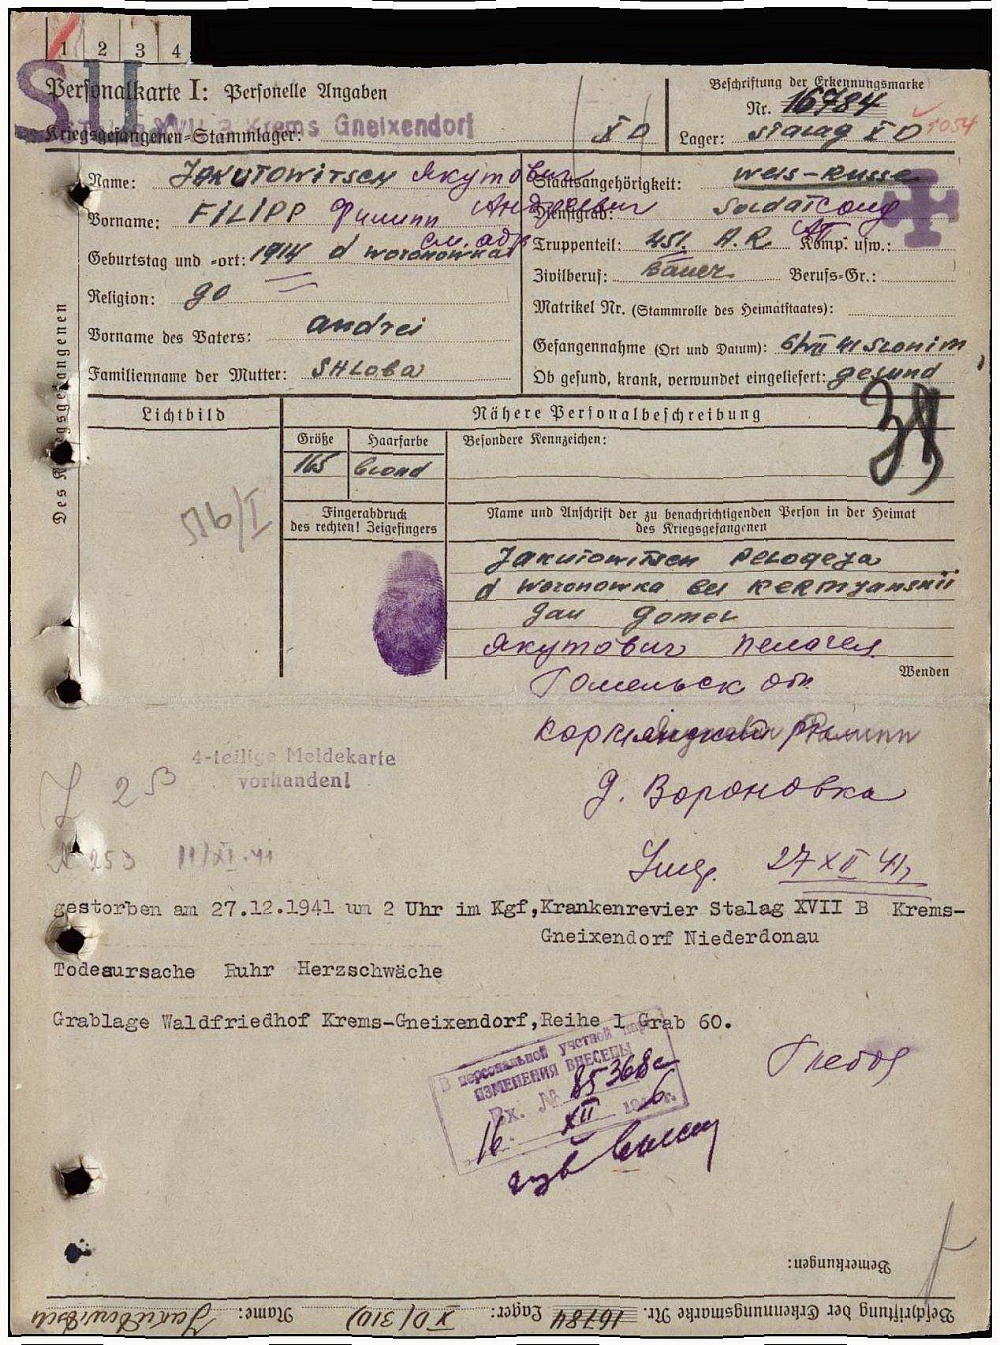 1 2 3 4
SU
Personalkarte I: Personelle Angaben
Beschriftung der Erkennungsmarke
Nr. 16784
Stalag XVII B Krems Gneixendorf
Kriegsgefangenen-Stammlager: X D
Lager: Stalag X D 1054
Des Kriegsgefangenen
Name: Jakutowitsch Якутович
Staatsangehörigkeit: Weis-Russe
Vorname: Filipp Филипп Андреевич
Dienstgrad: Soldat солд
Geburtstag und -ort: 1914 d Woronowka
см. адр
Truppenteil: 451. A.R. Komp. usw.:
Zivilberuf: Bauer Berufs-Gr.:
Religion: go
Matrikel Nr. (Stammrolle des Heimatstaates):
Vorname des Vaters: Andrei
Gefangennahme (Ort und Datum): 6/VII 41 Slonim
Familienname der Mutter: Shloba
Ob gesund, krank, verwundet eingeliefert: gesund
Lichtbild
Nähere Personalbeschreibung
Größe Haarfarbe Besondere Kennzeichen:
165 blond
Fingerabdruck
des rechten! Zeigefingers
Name und Anschrift der zu benachrichtigenden Person in der Heimat
des Kriegsgefangenen
Jakutowitsch Pelogeja
d Woronowka bei Kermjanskii
Gau Gomel
Якутович Пелагея
Wenden
Гомельск об.
Кормянский
д. Вороновка
4-teilige Meldekarte
vorhanden!
253 11/XI.41
27 XII 41
gestorben am 27.12.1941 um 2 Uhr im Kgf,Krankenrevier Stalag XVII B Krems-
Gneixendorf Niederdonau
Todeaursache Ruhr Herzschwäche
Grablage Waldfriedhof Krems-Gneixendorf,Reihe 1 Grab 60.
В персональной учетной
ИЗМЕНЕНИЯ ВНЕСЕНЫ
Вх. № 85368с
16. XII 1946 г.
Bemerkungen:
Beschriftung der Erkennungsmarke Nr. 16784 Lager: X D (310) Name: Jakutowitsch